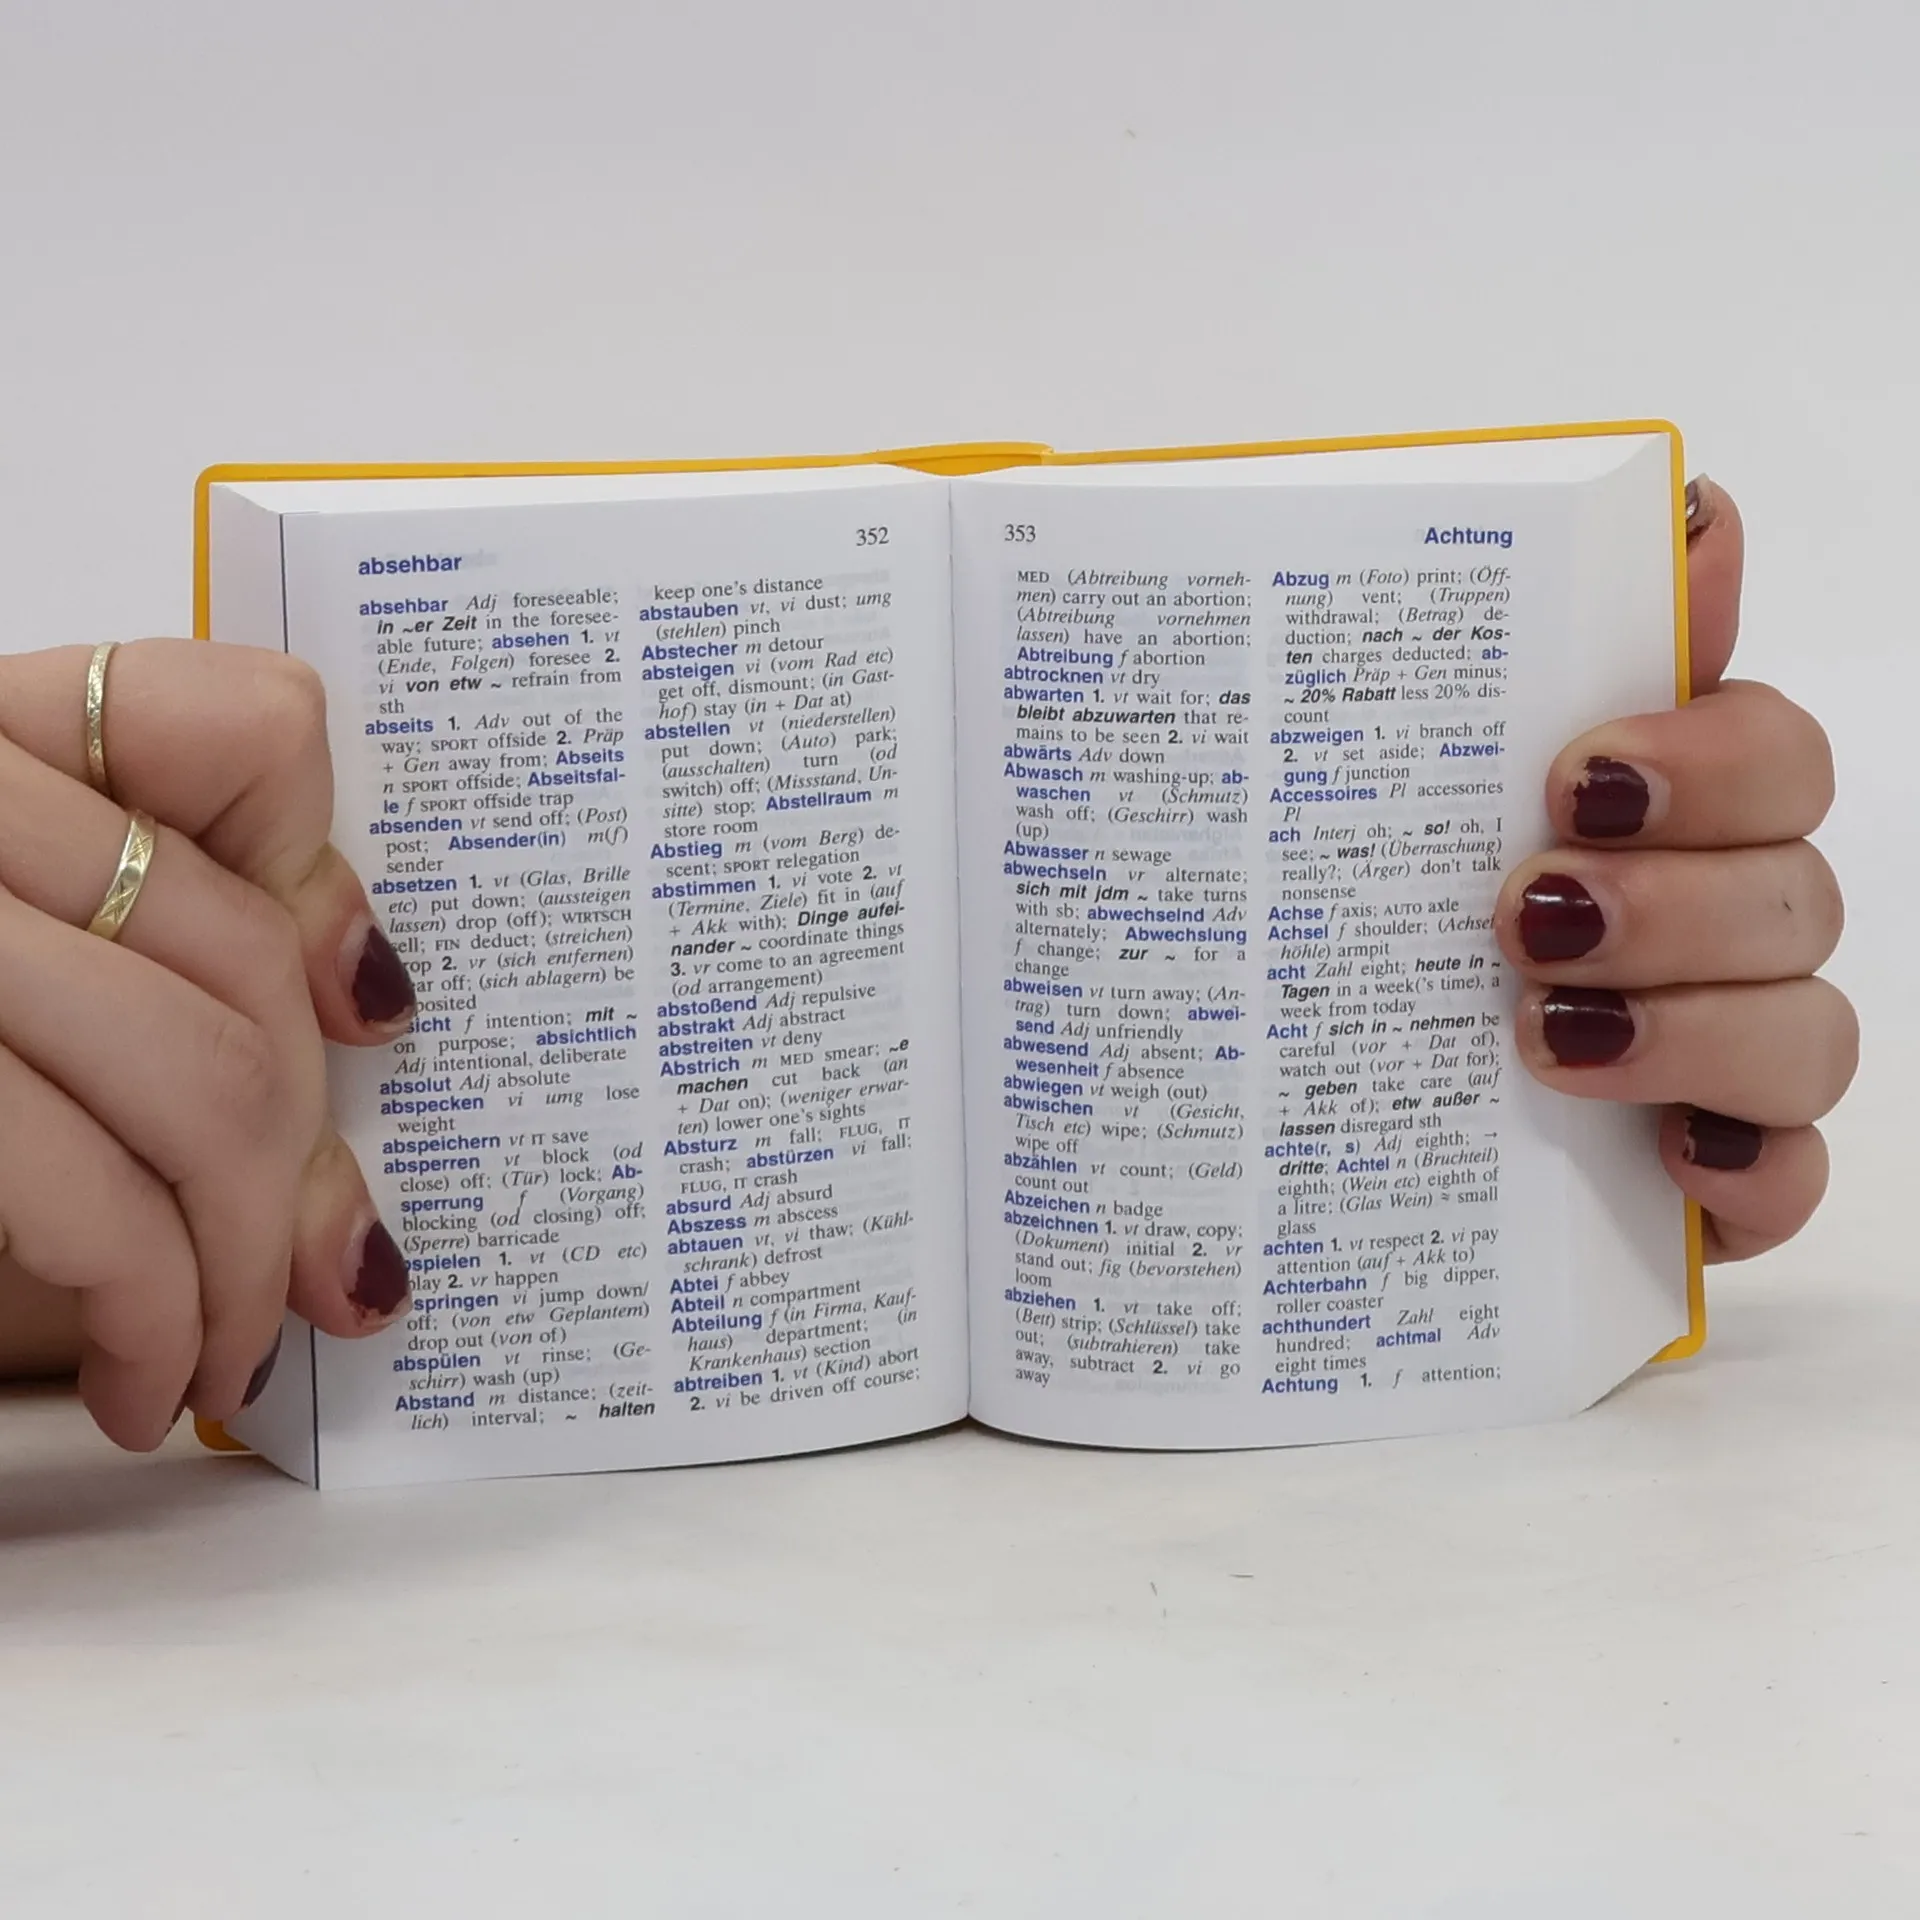 352
absehbar
absehbar Adj foreseeable;
in ~er Zeit in the foresee-
able future; absehen 1. vt
(Ende, Folgen) foresee 2.
vi von etw ~ refrain from
sth
abseits 1. Adv out of the
way; SPORT offside 2. Präp
+ Gen away from; Abseits
n SPORT offside; Abseitsfal-
le f SPORT offside trap
absenden vt send off; (Post)
post; Absender(in) m(f)
sender
absetzen 1. vt (Glas, Brille
etc) put down; (aussteigen
lassen) drop (off); WIRTSCH
sell; FIN deduct; (streichen)
op 2. vr (sich entfernen)
ar off; (sich ablagern) be
posited
sicht f intention; mit ~
on purpose; absichtlich
Adj intentional, deliberate
absolut Adj absolute
abspecken vi umg lose
weight
abspeichern vt IT save
absperren vt block (od
close) off; (Tür) lock; Ab-
sperrung f (Vorgang)
blocking (od closing) off;
(Sperre) barricade
spielen 1. vt (CD etc)
play 2. vr happen
springen vi jump down/
off; (von etw Geplantem)
drop out (von of)
abspülen vt rinse; (Ge-
schirr) wash (up)
Abstand m distance; (zeit-
lich) interval; ~ halten
keep one's distance
abstauben vt, vi dust; umg
(stehlen) pinch
Abstecher m detour
absteigen vi (vom Rad etc)
get off, dismount; (in Gast-
hof) stay (in + Dat at)
abstellen vt (niederstellen)
put down; (Auto) park;
(ausschalten) turn (od
switch) off; (Missstand, Un-
sitte) stop; Abstellraum m
store room
Abstieg m (vom Berg) de-
scent; SPORT relegation
abstimmen 1. vi vote 2. vt
(Termine, Ziele) fit in (auf
+ Akk with); Dinge aufei-
nander ~ coordinate things
3. vr come to an agreement
(od arrangement)
abstoßend Adj repulsive
abstrakt Adj abstract
abstreiten vt deny
Abstrich m MED smear; ~e
machen cut back (an
+ Dat on); (weniger erwar-
ten) lower one's sights
Absturz m fall; FLUG, IT
crash; abstürzen vi fall;
FLUG, IT crash
absurd Adj absurd
Abszess m abscess
abtauen vt, vi thaw; (Kühl-
schrank) defrost
Abtei f abbey
Abteil n compartment
Abteilung f (in Firma, Kauf-
haus) department; (in
Krankenhaus) section
abtreiben 1. vt (Kind) abort
2. vi be driven off course;
353
Achtung
MED (Abtreibung vorneh-
men) carry out an abortion;
(Abtreibung vornehmen
lassen) have an abortion;
Abtreibung f abortion
abtrocknen vt dry
abwarten 1. vt wait for; das
bleibt abzuwarten that re-
mains to be seen 2. vi wait
abwärts Adv down
Abwasch m washing-up; ab-
waschen vt (Schmutz)
wash off; (Geschirr) wash
(up)
Abwasser n sewage
abwechseln vr alternate;
sich mit jdm ~ take turns
with sb; abwechselnd Adv
alternately; Abwechslung
f change; zur ~ for a
change
abweisen vt turn away; (An-
trag) turn down; abwei-
send Adj unfriendly
abwesend Adj absent; Ab-
wesenheit f absence
abwiegen vt weigh (out)
abwischen vt (Gesicht,
Tisch etc) wipe; (Schmutz)
wipe off
abzählen vt count; (Geld)
count out
Abzeichen n badge
abzeichnen 1. vt draw, copy;
(Dokument) initial 2. vr
stand out; fig (bevorstehen)
loom
abziehen 1. vt take off;
(Bett) strip; (Schlüssel) take
out; (subtrahieren) take
away, subtract 2. vi go
away
Abzug m (Foto) print; (Öff-
nung) vent; (Truppen)
withdrawal; (Betrag) de-
duction; nach ~ der Kos-
ten charges deducted; ab-
züglich Präp + Gen minus;
~ 20% Rabatt less 20% dis-
count
abzweigen 1. vi branch off
2. vt set aside; Abzwei-
gung f junction
Accessoires Pl accessories
Pl
ach Interj oh; ~ so! oh, I
see; ~ was! (Überraschung)
really?; (Ärger) don't talk
nonsense
Achse f axis; AUTO axle
Achsel f shoulder; (Achsel
höhle) armpit
acht Zahl eight; heute in ~
Tagen in a week('s time), a
week from today
Acht f sich in ~ nehmen be
careful (vor + Dat of),
watch out (vor + Dat for);
~ geben take care (auf
+ Akk of); etw außer ~
lassen disregard sth
achte(r, s) Adj eighth; →
dritte; Achtel n (Bruchteil)
eighth; (Wein etc) eighth of
a litre; (Glas Wein) ≈ small
glass
achten 1. vt respect 2. vi pay
attention (auf + Akk to)
Achterbahn f big dipper,
roller coaster
achthundert Zahl eight
hundred; achtmal Adv
eight times
Achtung 1. f attention;